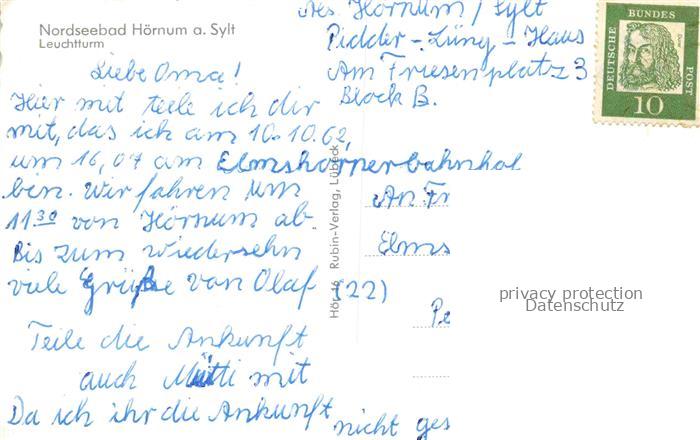 Nordseebad Hörnum a. Sylt
Leuchtturm
Abs. Hörnum / Sylt
Pidder-Lüng-Haus
Am Friesenplatz 3
Block B.
DEUTSCHE BUNDES POST
10
Liebe Oma!
Hier mit teile ich dir
mit, das ich am 10.10.62,
um 16,07 am Elmshornerbahnhof
bin. Wir fahren um
11 30 von Hörnum ab.
Bis zum wiedersehn
viele Grüße von Olaf (22)
Teile die Ankunft
auch Mutti mit
Da ich ihr die Ankunft nicht ges
An Fr
Elms
Pe
Hör 16 Rubin-Verlag, Lübeck
privacy protection
Datenschutz